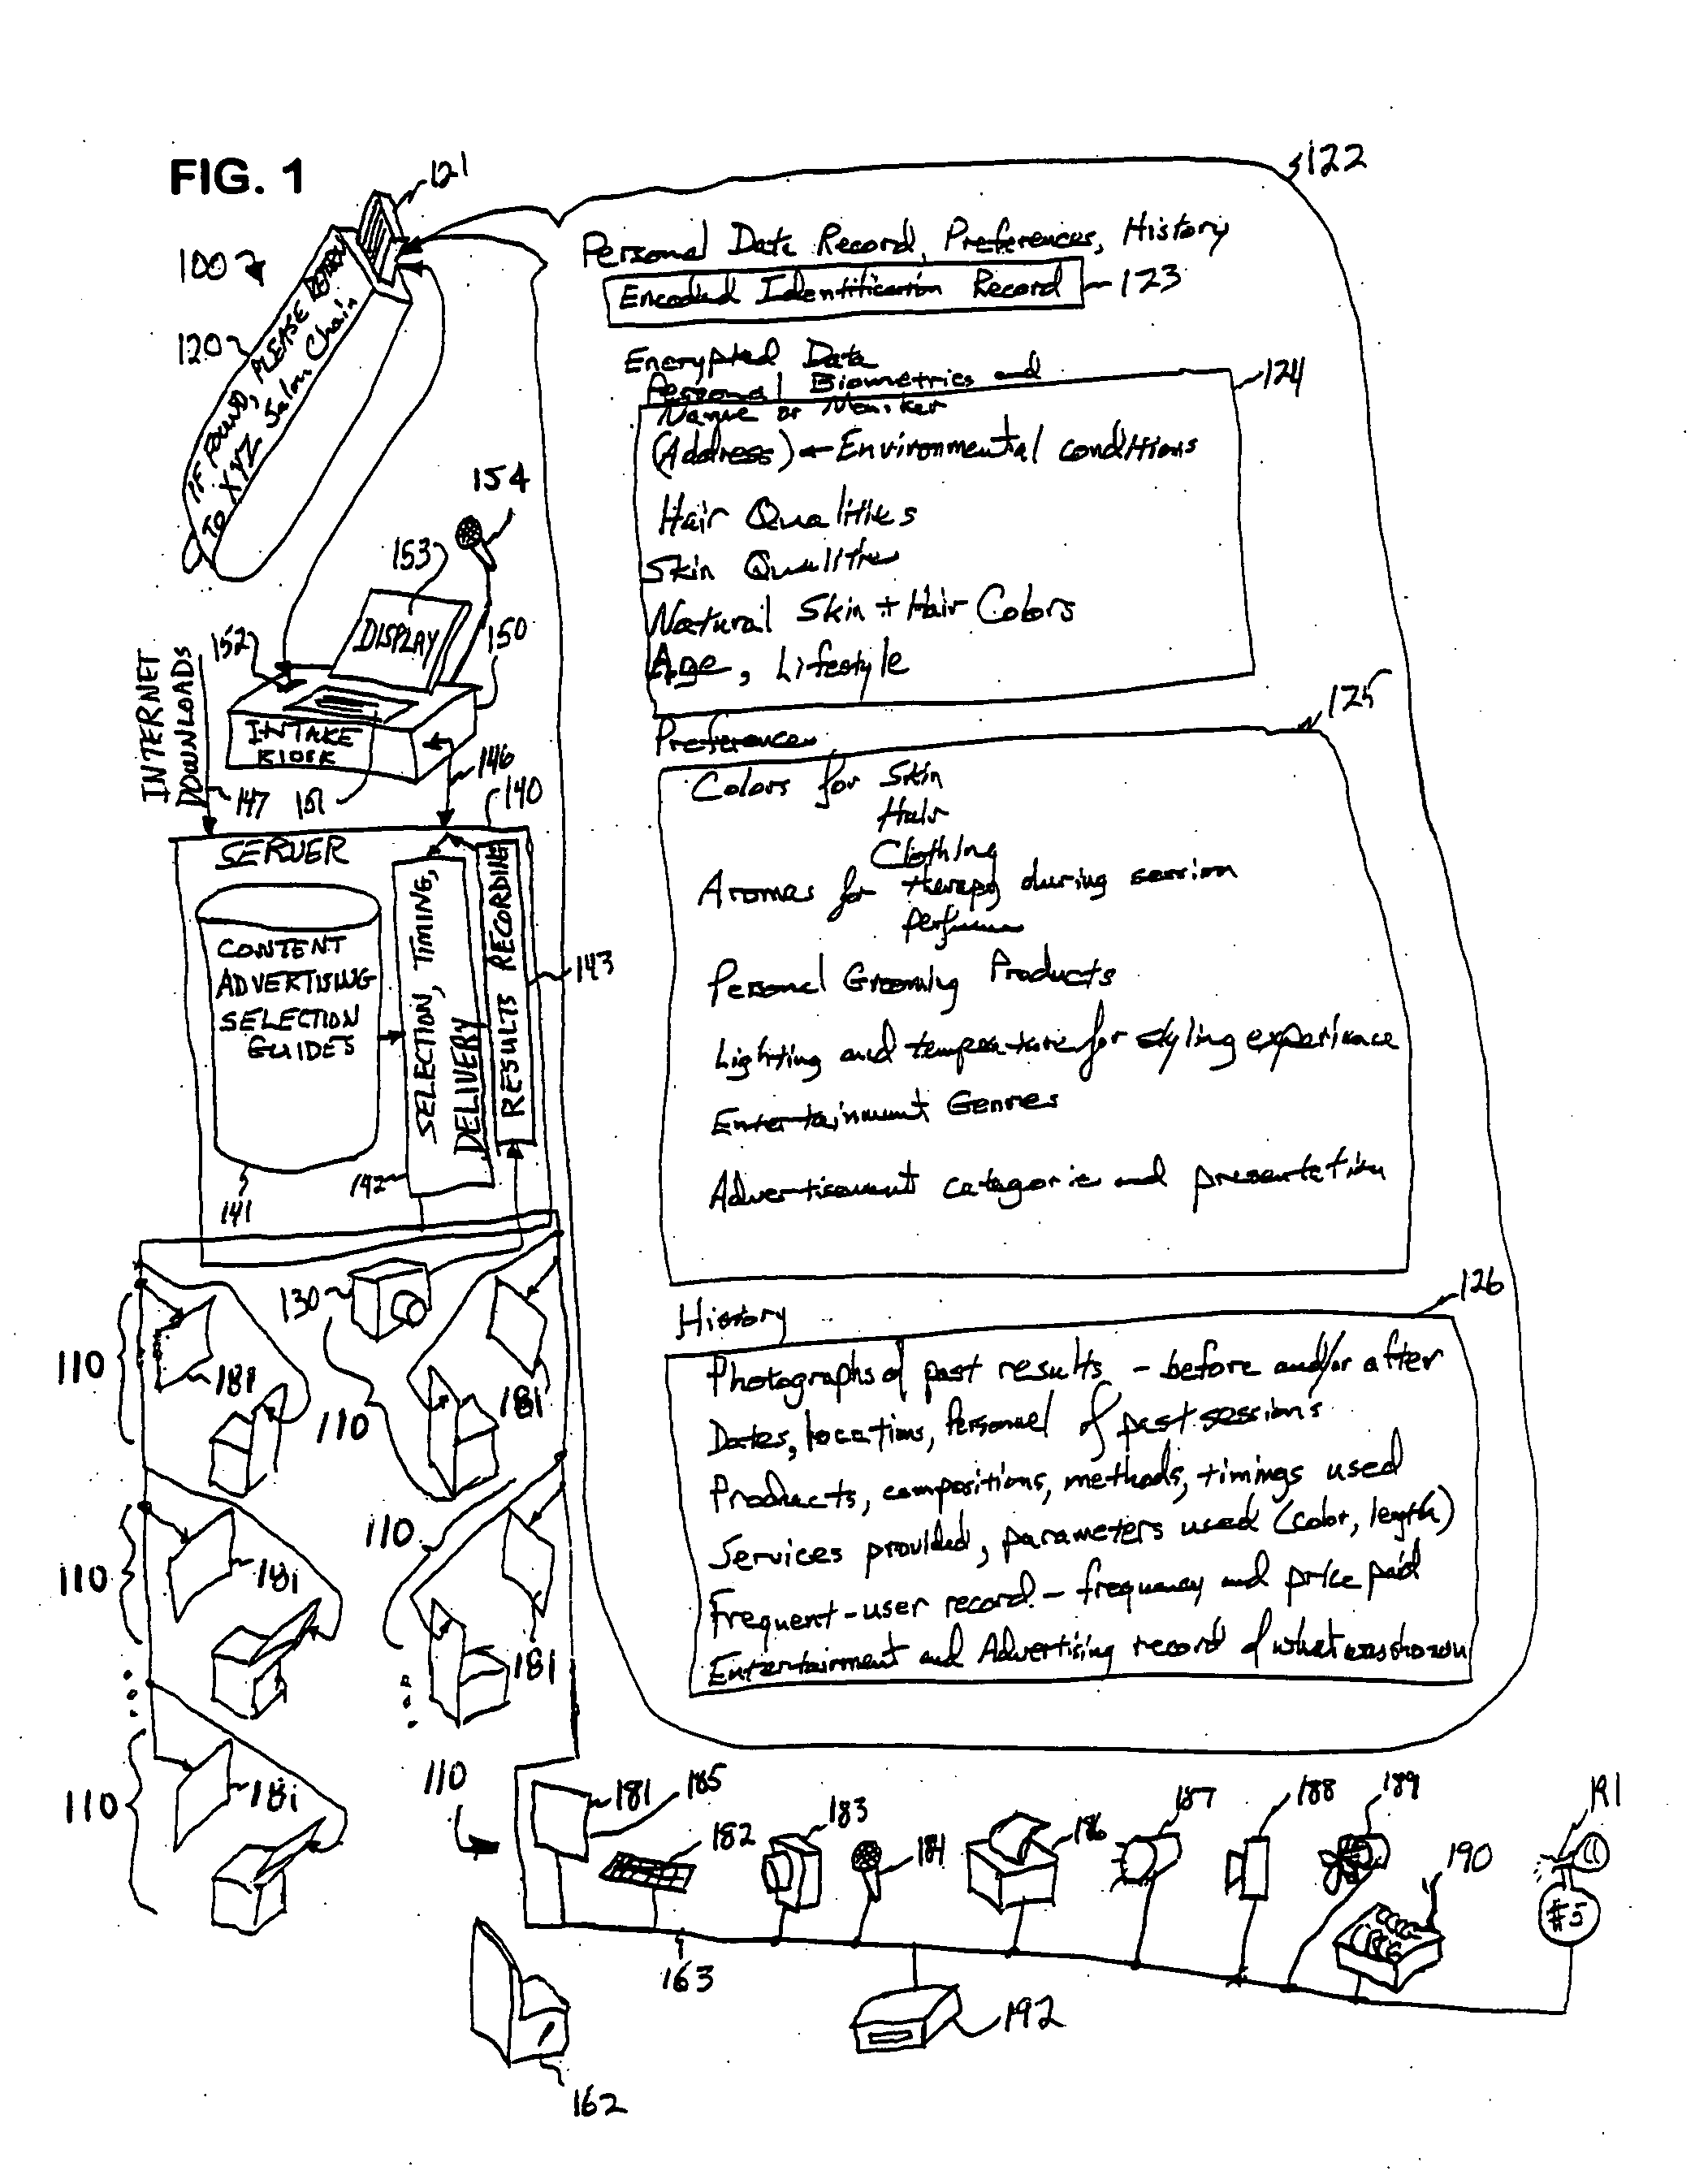 FIG. 1
121
100
120
IF FOUND, PLEASE RETURN
TO XYZ Salon Chain
122
Personal Data Record, Preferences, History
Encoded Identification Record
123
Encrypted Data
Personal Biometrics and
124
Name or Moniker
(Address) ← Environmental conditions
Hair Qualities
Skin Qualities
Natural Skin + Hair Colors
Age, Lifestyle
125
Preferences
Colors for Skin
Hair
Clothing
Aromas for therapy during session
perfume
Personal Grooming Products
Lighting and temperature for styling experience
Entertainment Genres
Advertisement categories and presentation
126
History
Photographs of past results - before and/or after
Dates, locations, Personnel of past sessions
Products, compositions, methods, timings used
Services provided, parameters used (color, length)
Frequent-user record - frequency and price paid
Entertainment and Advertising record of what was shown
154
153
152
DISPLAY
150
INTAKE
KIOSK
INTERNET
DOWNLOADS
147
151
146
140
SERVER
CONTENT
ADVERTISING
SELECTION
GUIDES
SELECTION, TIMING,
DELIVERY
RESULTS RECORDING
143
142
141
130
110
181
110
181
110
181
110
181
110
181
110
181
185
182
183
184
186
187
188
189
190
191
#5
163
192
162